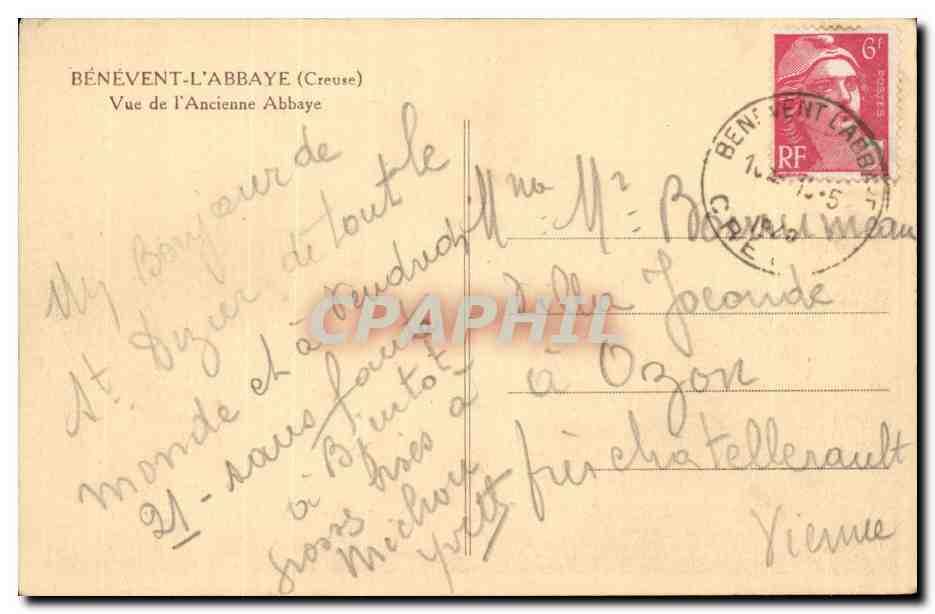 BÉNÉVENT-L'ABBAYE (Creuse)
Vue de l'Ancienne Abbaye
6F
POSTES
RF
BENEVENT L'ABBAYE
CRE
Bonjour de
St. Dizier de tout le
monde et à vendredi
21 - sans faute
à Bientot
gross bises à
Michou
Yvette
Mme Mr
Villa Joconde
à Ozon
près chatellerault
Vienne
CPAPHIL